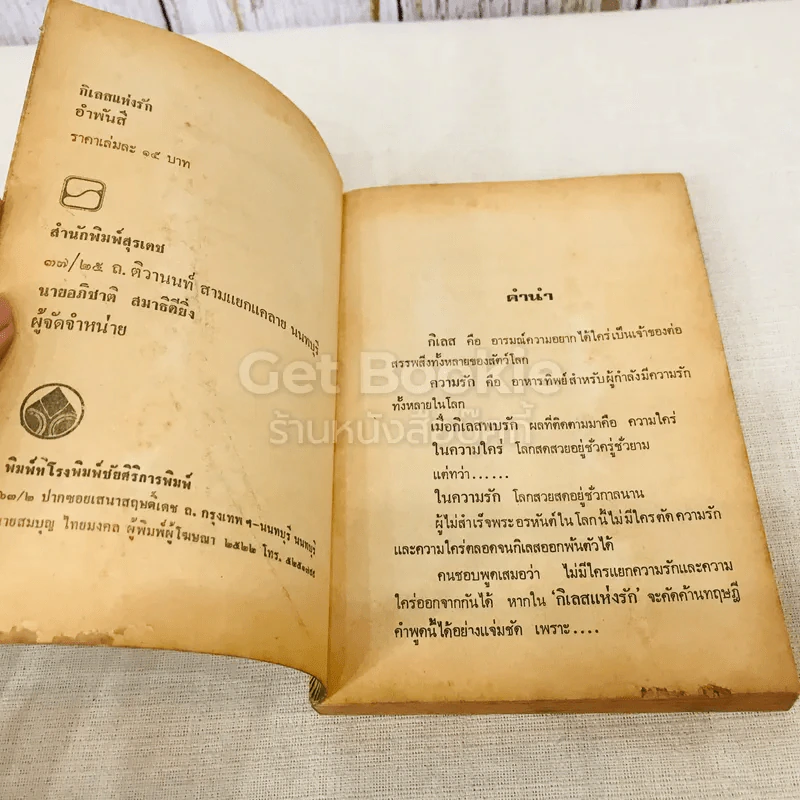 กิเลสแห่งรัก
อำพันสี
ราคาเล่มละ ๑๕ บาท
สำนักพิมพ์สุรเดช
๓๗/๒๕ ถ. ติวานนท์ สามแยกแคลาย นนทบุรี
นายอภิชาติ สมาธิดียิ่ง
ผู้จัดจำหน่าย
พิมพ์ที่โรงพิมพ์ชัยศิริการพิมพ์
๖๓/๒ ปากซอยเสนาสฤษดิ์เดช ถ. กรุงเทพ ฯ-นนทบุรี นนทบุรี
นายสมบุญ ไทยมงคล ผู้พิมพ์ผู้โฆษณา ๒๕๒๒ โทร.
คำนำ
กิเลส คือ อารมณ์ความอยากได้ใคร่เป็นเจ้าของต่อ
สรรพสิ่งทั้งหลายของสัตว์โลก
ความรัก คือ อาหารทิพย์สำหรับผู้กำลังมีความรัก
ทั้งหลายในโลก
เมื่อกิเลสพบรัก ผลที่ติดตามมาคือ ความใคร่
ในความใคร่ โลกสดสวยอยู่ชั่วครู่ชั่วยาม
แต่ทว่า......
ในความรัก โลกสวยสดอยู่ชั่วกาลนาน
ผู้ไม่สำเร็จพระอรหันต์ในโลกนี้ไม่มีใครตัดความรัก
และความใคร่ตลอดจนกิเลสออกพ้นตัวได้
คนชอบพูดเสมอว่า ไม่มีใครแยกความรักและความ
ใคร่ออกจากกันได้ หากใน 'กิเลสแห่งรัก' จะคัดค้านทฤษฎี
คำพูดนี้ได้อย่างแจ่มชัด เพราะ....
Get Bookie
ร้านหนังสือบุ๊กกี้